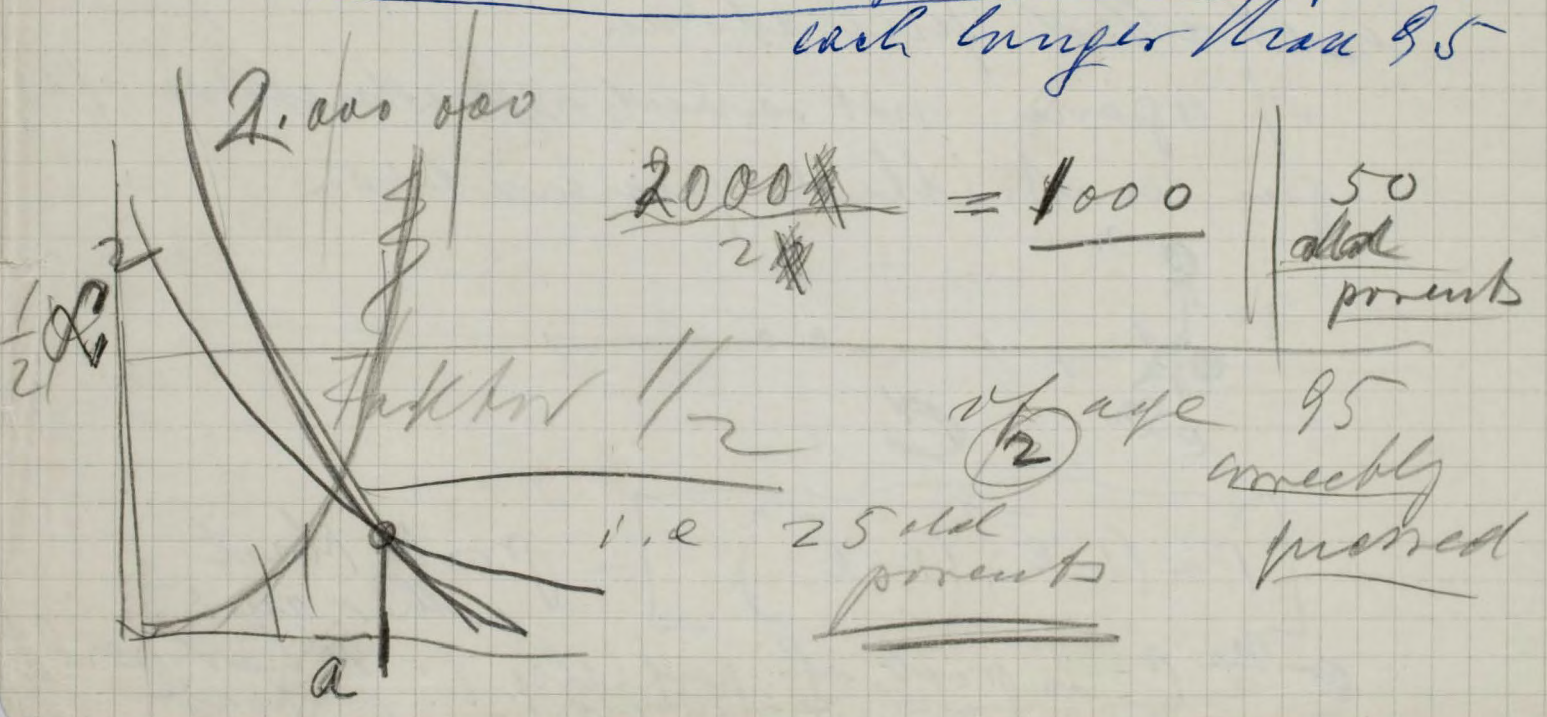 each longer than 95
2.000 000
2000 = 1000
2
50
old
parents
2
1/2
Faktor 1/2
if age 95
2
correctly
guessed
i.e 25 old
parents
a